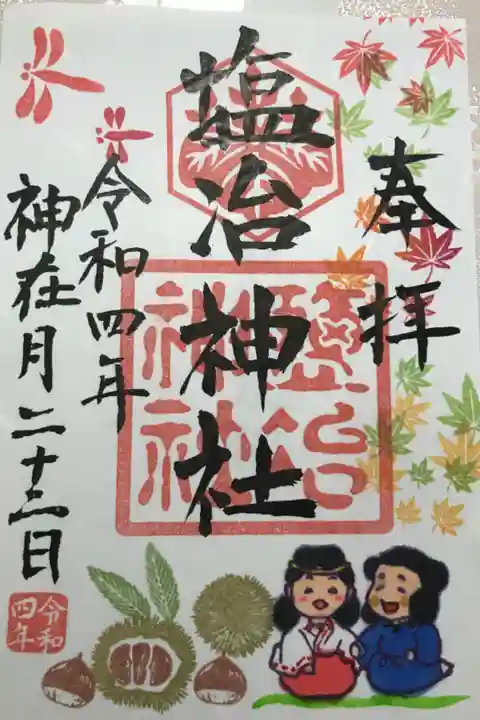 奉拝
塩冶
神社
塩冶神社
令和四年
神在月二十三日
令和
四年